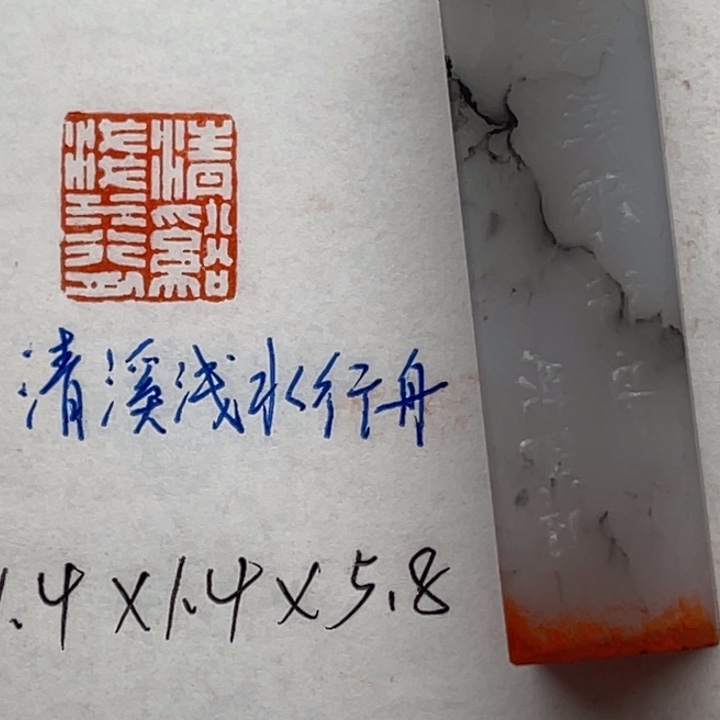 清溪浅水行舟
清溪浅水行舟
1.4×1.4×5.8